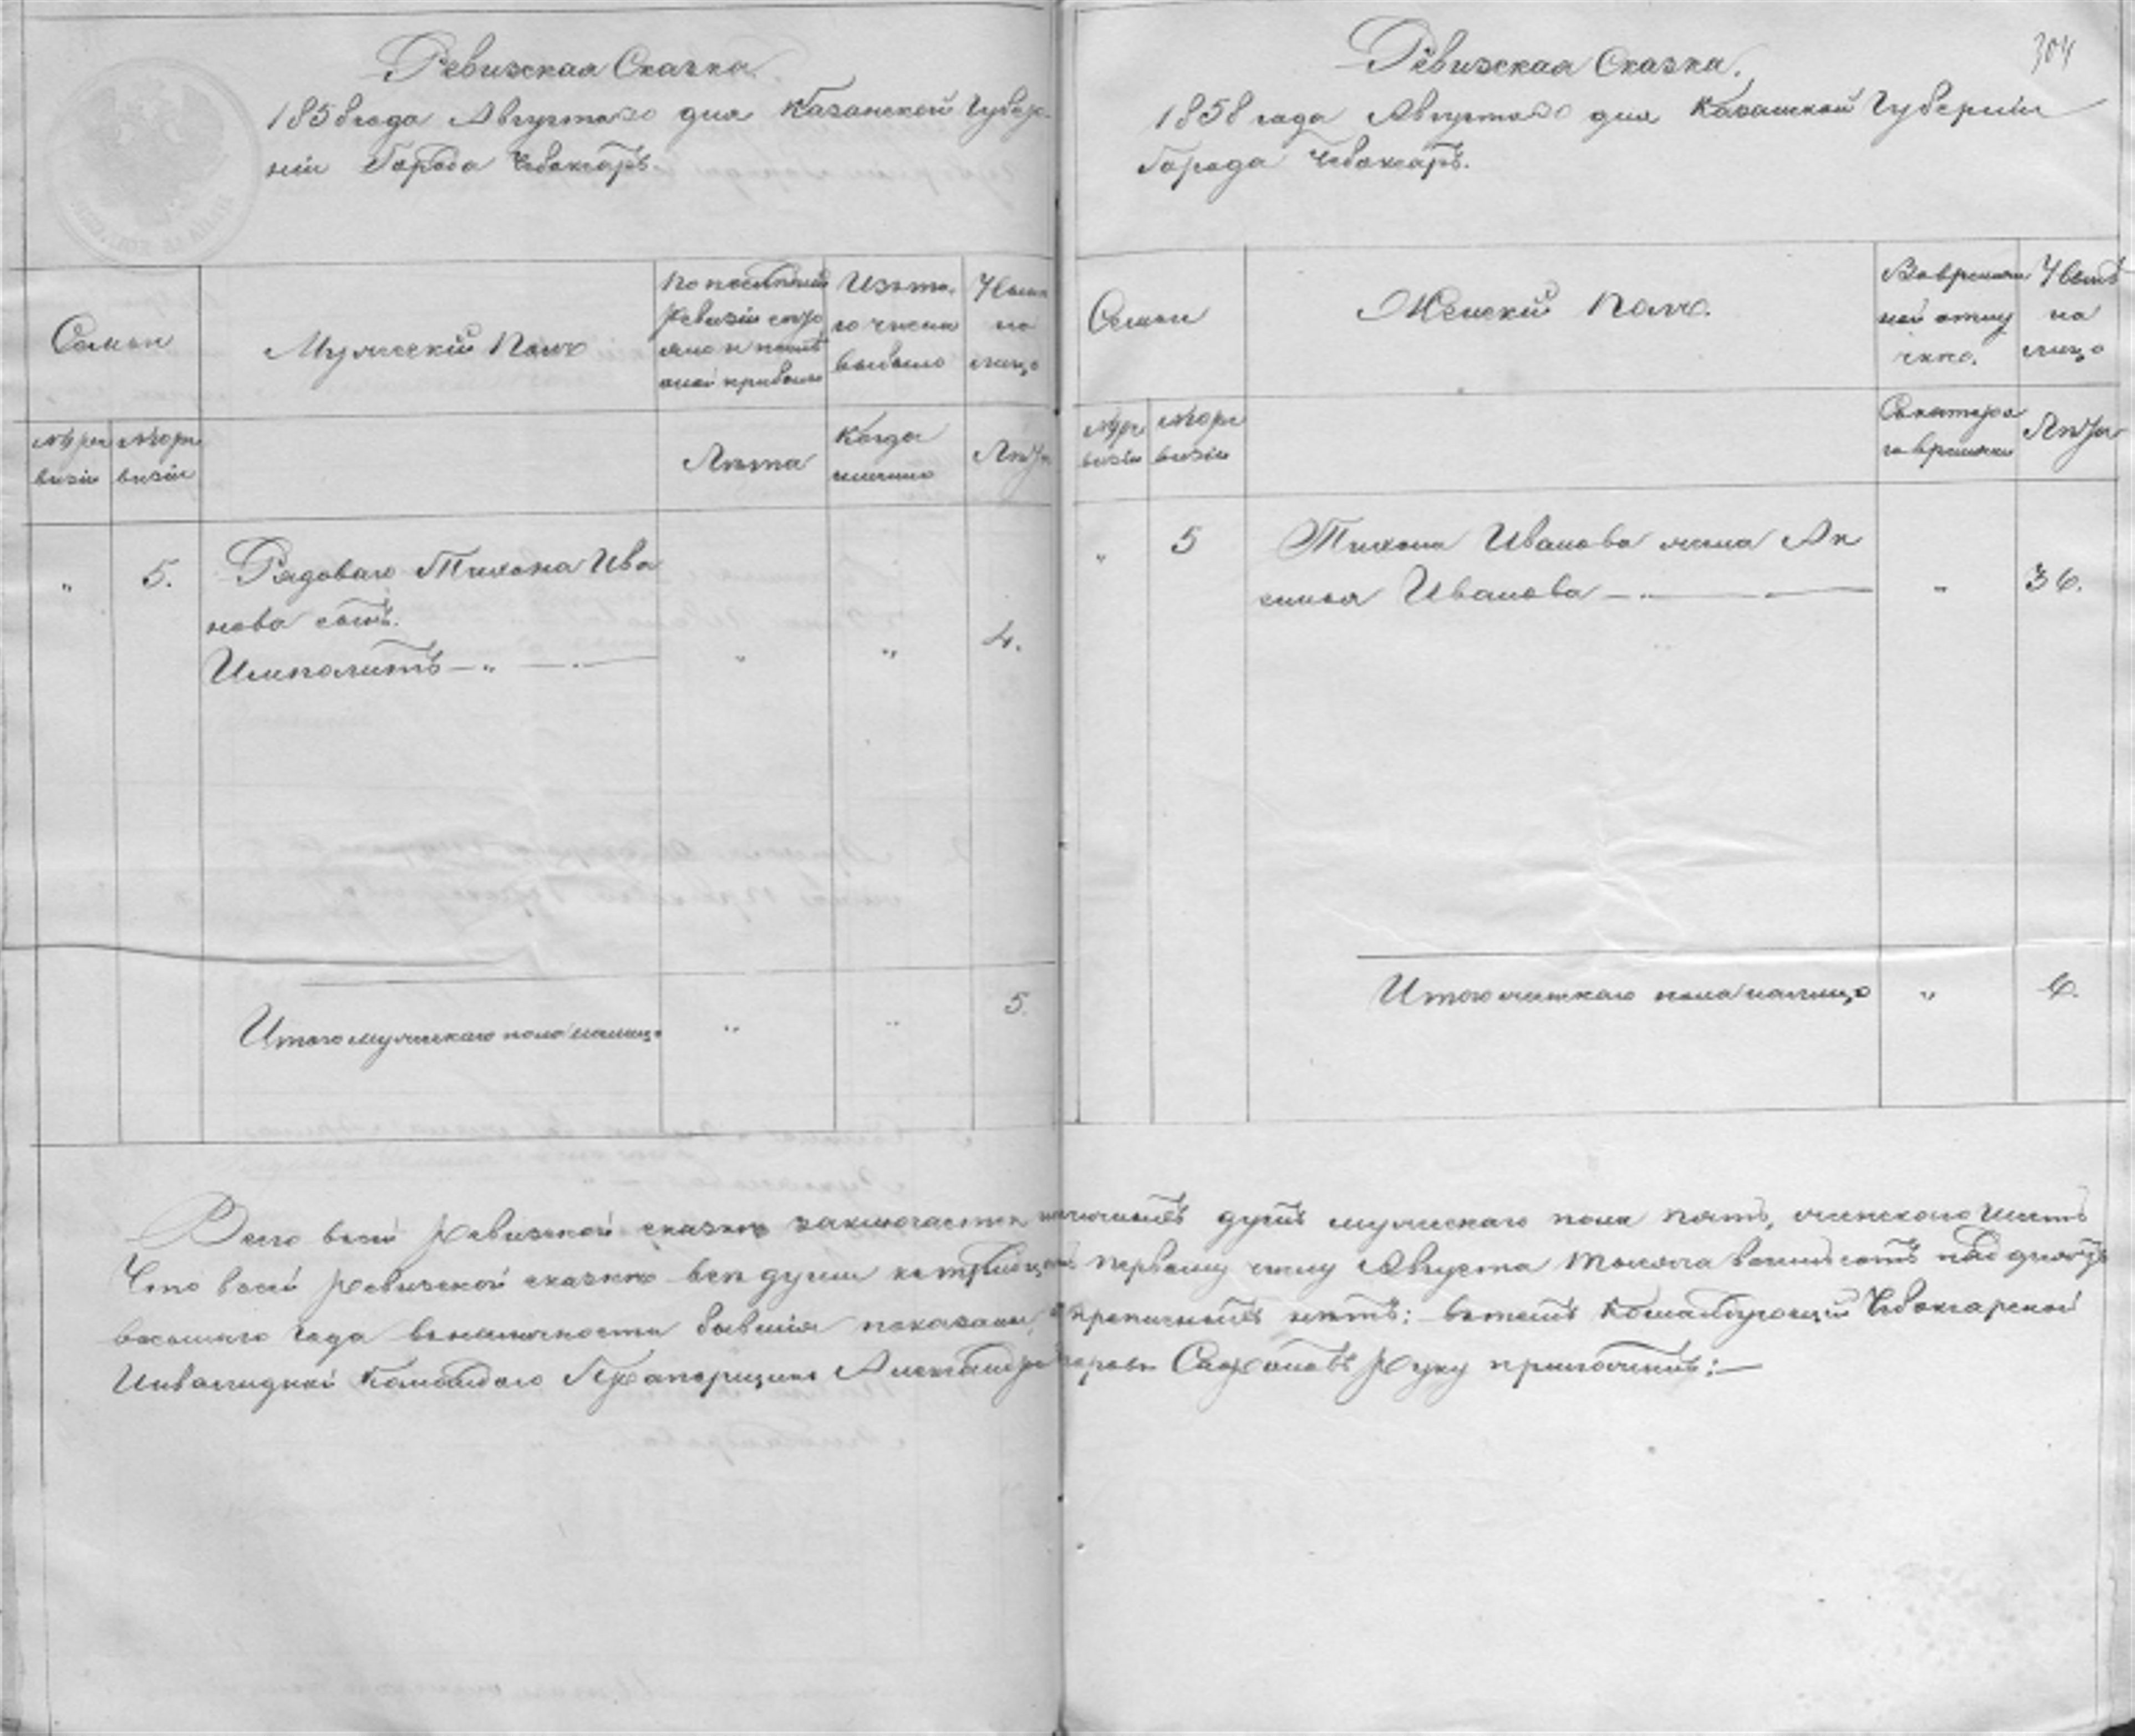 Ревизская Сказка.
1858 года Августа 20 дня Казанской Губер-
нии Города Чебоксаръ.
Семьи
Мужеский Полъ
По последней
Ревизіи состо
яло и после
оной прибыло
Изъ то-
го числа
выбыло
Ныне
на
лицо
№ 9 ре
визіи
№ 10 ре
визіи
Лета
Когда
именно
Лета
„
5.
Рядоваго Тихона Ива
нова сынъ.
Ипполитъ — „ — . —
„
„
4.
Итого мужескаго пола налицо
„
„
5.
304
Ревизская Сказка.
1858 года Августа 20 дня Казанской Губерніи
Города Чебоксаръ.
Семьи
Женский Полъ.
Во времен
ной отлу
чке.
Ныне
на
лицо
№ 9 ре
визіи
№ 10 ре
визіи
Съ котора
го времени
Лета
„
5
Тихона Иванова жена Ак
синья Иванова — . — —
„
36.
Итого женскаго пола налицо
„
6.
Всего в сей Ревизской сказке заключается наличныхъ душъ мужескаго пола пять, женскаго шесть
Что в сей Ревизской сказке все души къ первому числу Августа тысяча восемьсотъ пятьдесятъ
восьмаго года въ наличности бывшія показаны, и прописныхъ нетъ: въ томъ Командующій Чебоксарской
Инвалидной Командою Прапорщикъ Руку приложилъ: —